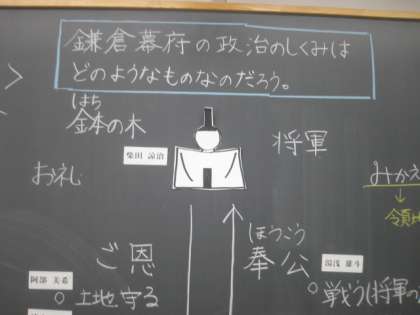 鎌倉幕府の政治のしくみは
どのようなものなのだろう。
はち
鉢の木
柴田 諒治
将軍
おれし
みかえ
ご恩
ほうこう
奉公
阿部 美希
湯浅 雄斗
○土地、守る
○戦う(将軍の